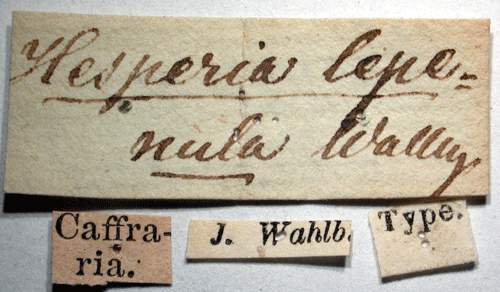 Hesperia lepe-
nula Wallgr.
Caffra-
ria.
J. Wahlb.
Type.